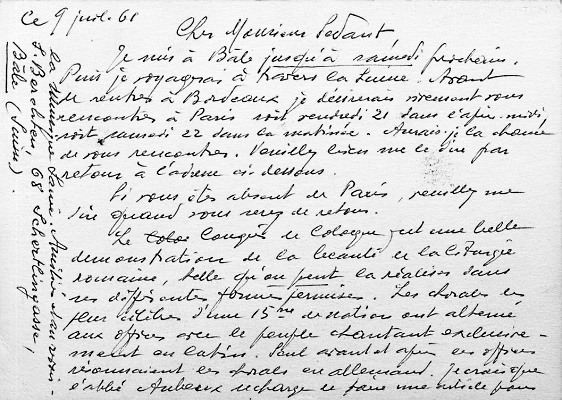 Ce 9 juil. 61
Cher Monsieur
Je suis à Bâle jusqu'à samedi prochain.
Puis je voyagerai à travers la Suisse. Avant
de rentrer à Bordeaux je désirerais vivement vous
rencontrer à Paris soit vendredi 21 dans l'après-midi
soit samedi 22 dans la matinée. Aurais-je la chance
de vous rencontrer. Veuillez bien me le dire par
retour à l'adresse ci-dessous.
Si vous êtes absent de Paris, veuillez me
dire quand vous serez de retour.
Le Congrès de Cologne fut une belle
démonstration de la beauté de la liturgie
romaine, telle qu'on peut la réaliser dans
ses différentes formes permises. Les chorales les
plus célèbres d'une 15ne de nation ont alterné
aux offices avec le peuple chantant exclusive-
ment en latin. Seul avant et après les offices
résonnaient les chorals en allemand. Je crois que
l'abbé se charge de faire une article pour
La Musique Sacrée
68
Bâle (Suisse).